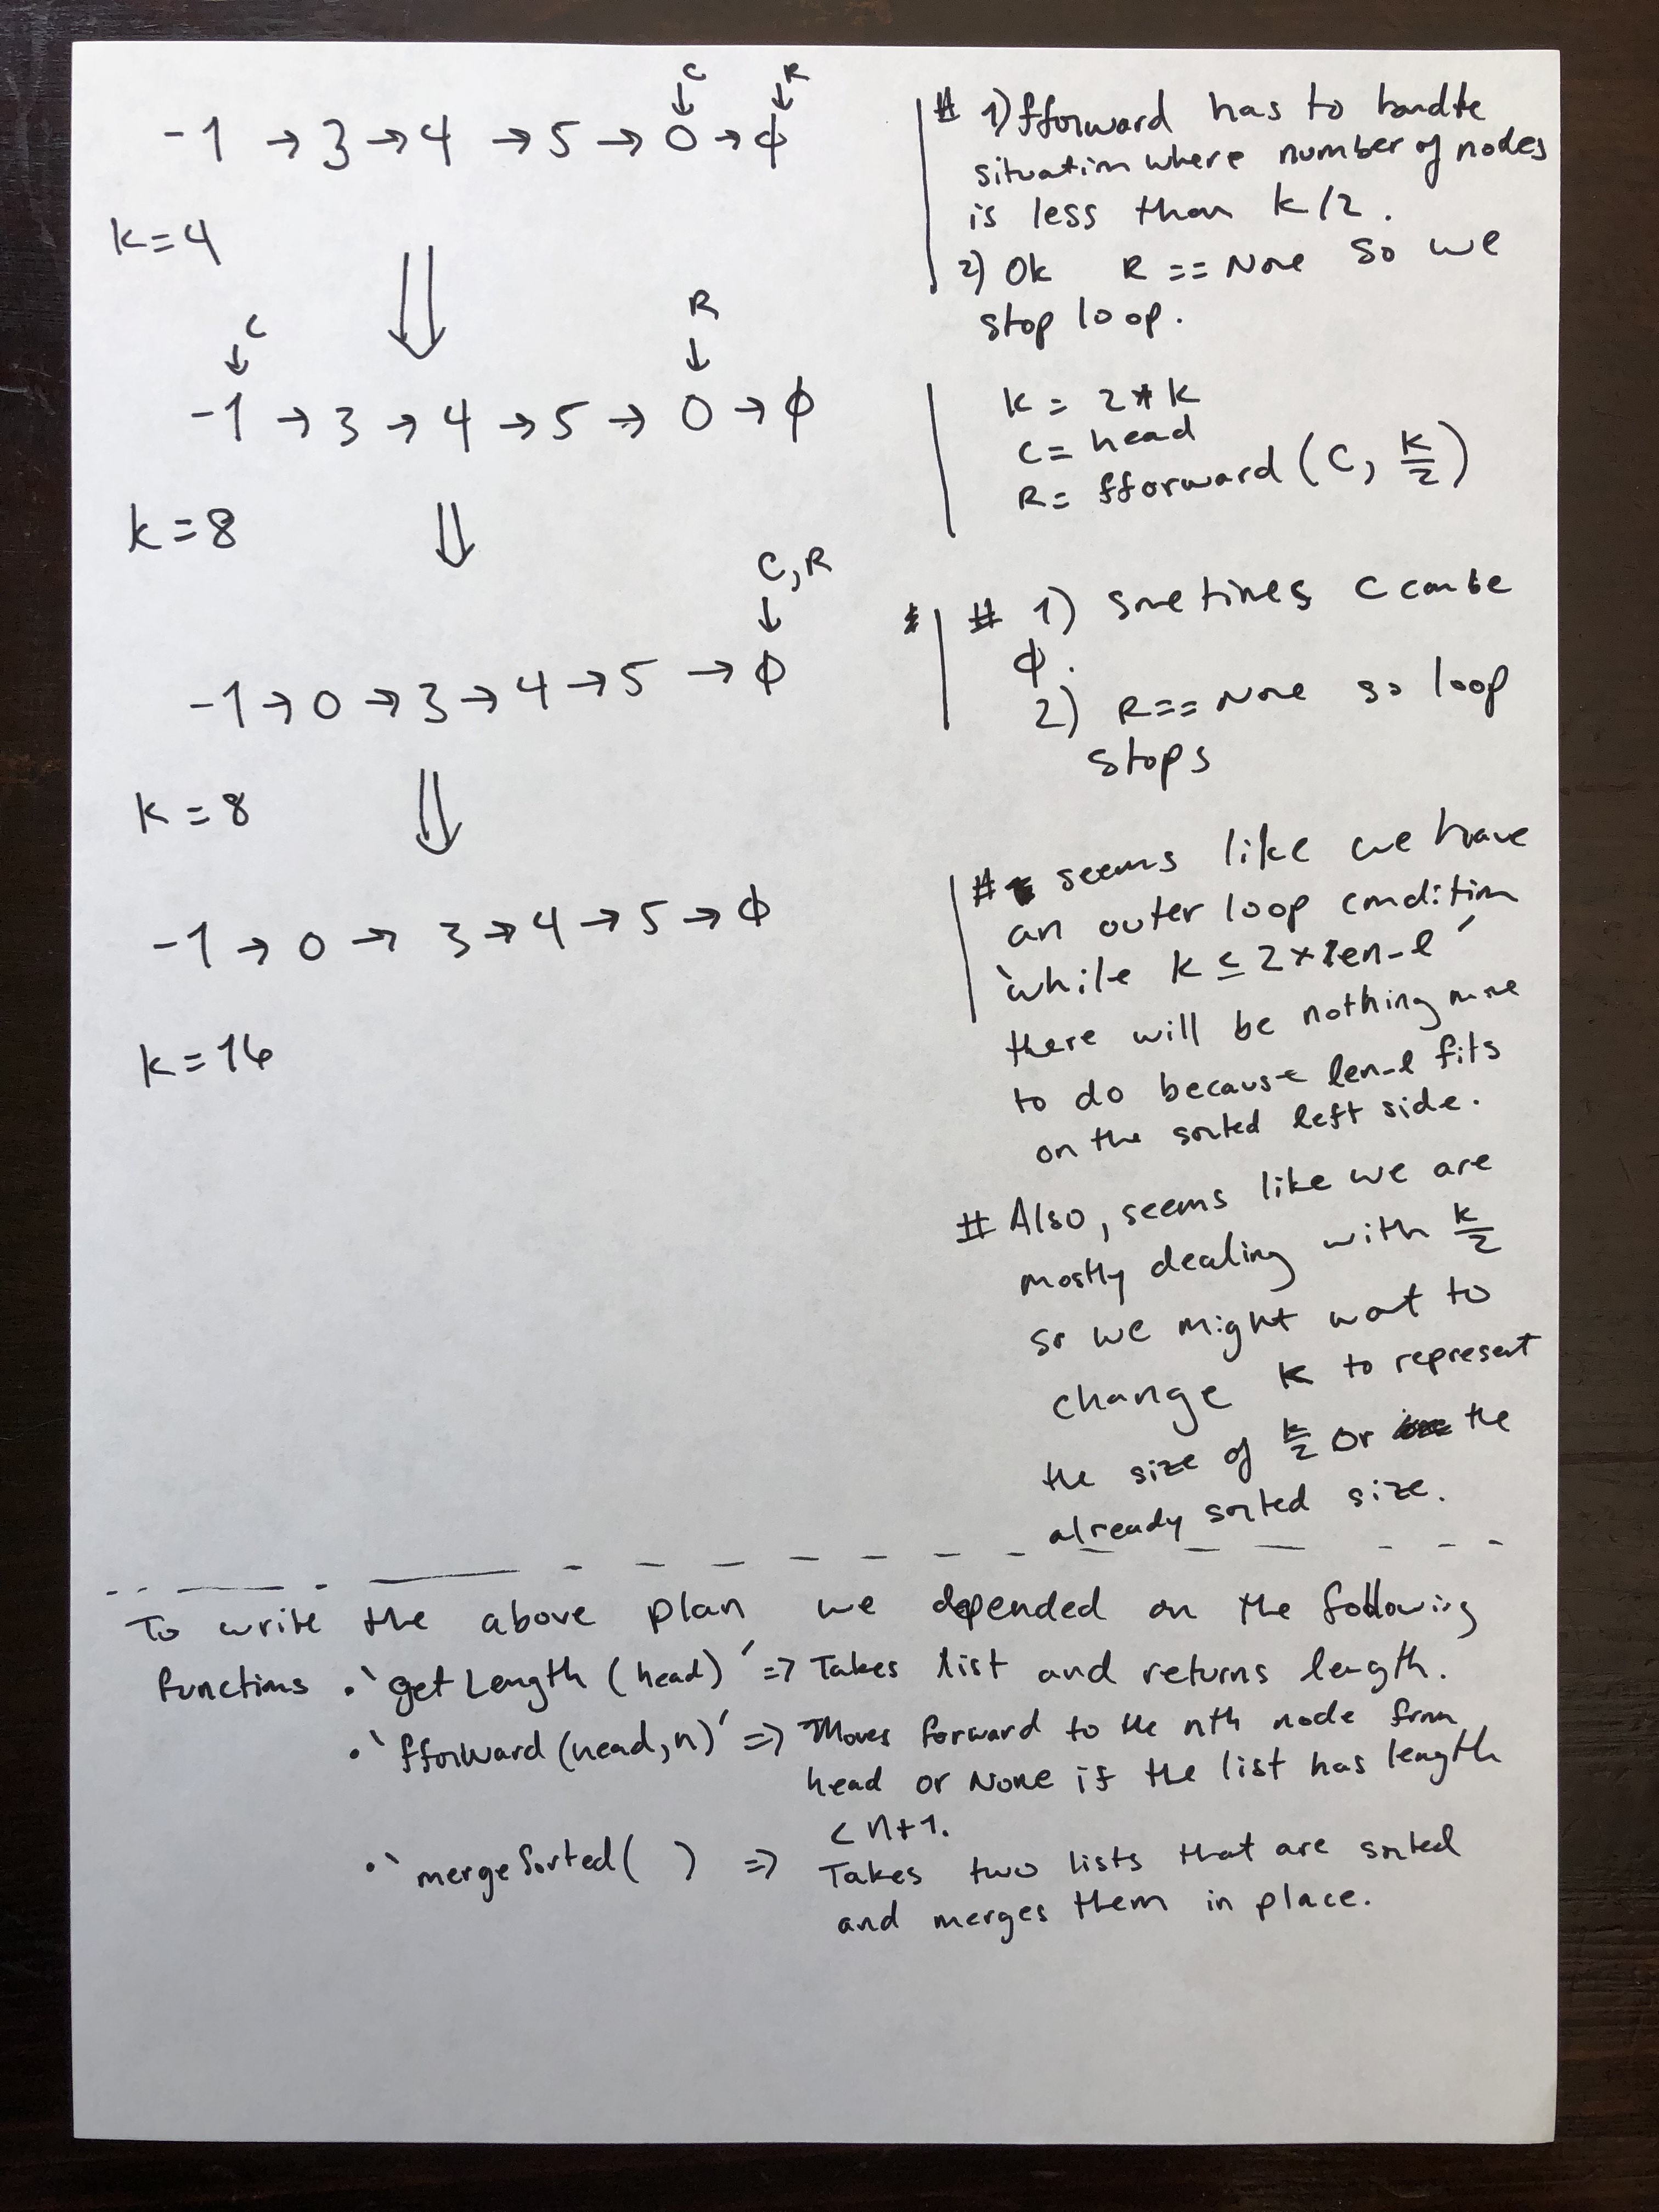 C R
↓ ↓
-1 → 3 → 4 → 5 → 0 → ϕ
k=4
⇓
C R
↓ ↓
-1 → 3 → 4 → 5 → 0 → ϕ
k=8 ⇓
C,R
↓
-1 → 0 → 3 → 4 → 5 → ϕ
k=8 ⇓
-1 → 0 → 3 → 4 → 5 → ϕ
k=16
# 1) fforward has to handle
situation where number of nodes
is less than k/2.
2) Ok R == None so we
stop loop.
k = 2*k
C = head
R = fforward(C, k/2)
# 1) sometimes C can be
ϕ.
2) R == None so loop
stops
# seems like we have
an outer loop condition
`while k ≤ 2×len-l´
there will be nothing more
to do because len-l fits
on the sorted left side.
# Also, seems like we are
mostly dealing with k/2
so we might want to
change k to represent
the size of k/2 or the
already sorted size.
To write the above plan we depended on the following
functions • `getLength(head)´ => Takes list and returns length.
• `fforward(head,n)´ => Moves forward to the nth node from
head or None if the list has length
< n+1.
• `mergeSorted( ) => Takes two lists that are sorted
and merges them in place.